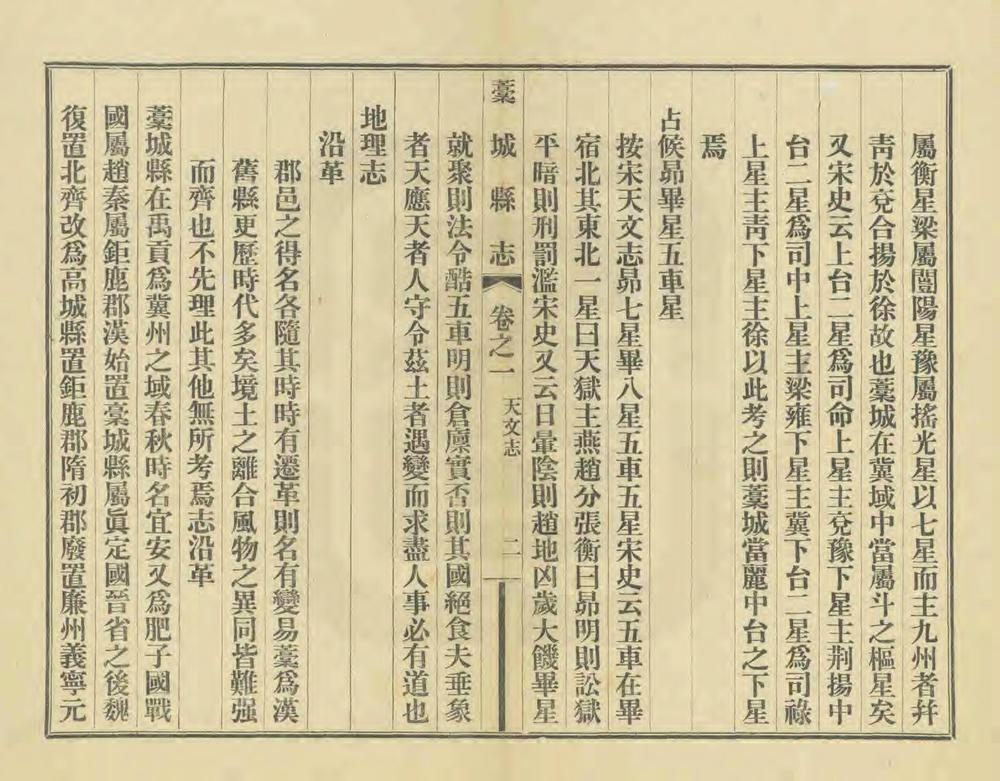 屬衡星梁屬闓陽星豫屬搖光星以七星而主九州者幷
靑於兗合揚於徐故也藁城在冀域中當屬斗之樞星矣
又宋史云上台二星爲司命上星主兗豫下星主荆揚中
台二星爲司中上星主梁雍下星主冀下台二星爲司祿
上星主靑下星主徐以此考之則藁城當麗中台之下星
焉
占候昴畢星五車星
按宋天文志昴七星畢八星五車五星宋史云五車在畢
宿北其東北一星曰天獄主燕趙分張衡曰昴明則訟獄
平暗則刑罰濫宋史又云日暈陰則趙地凶歲大饑畢星
藁城縣志 卷之二 天文志 二
就聚則法令酷五車明則倉廩實否則其國絕食夫垂象
者天應天者人守令茲土者遇變而求盡人事必有道也
地理志
沿革
郡邑之得名各隨其時時有遷革則名有變易藁爲漢
舊縣更歷時代多矣境土之離合風物之異同皆難强
而齊也不先理此其他無所考焉志沿革
藁城縣在禹貢爲冀州之域春秋時名宜安又爲肥子國戰
國屬趙秦屬鉅鹿郡漢始置槀城縣屬眞定國晉省之後魏
復置北齊改爲高城縣置鉅鹿郡隋初郡廢置廉州義寧元